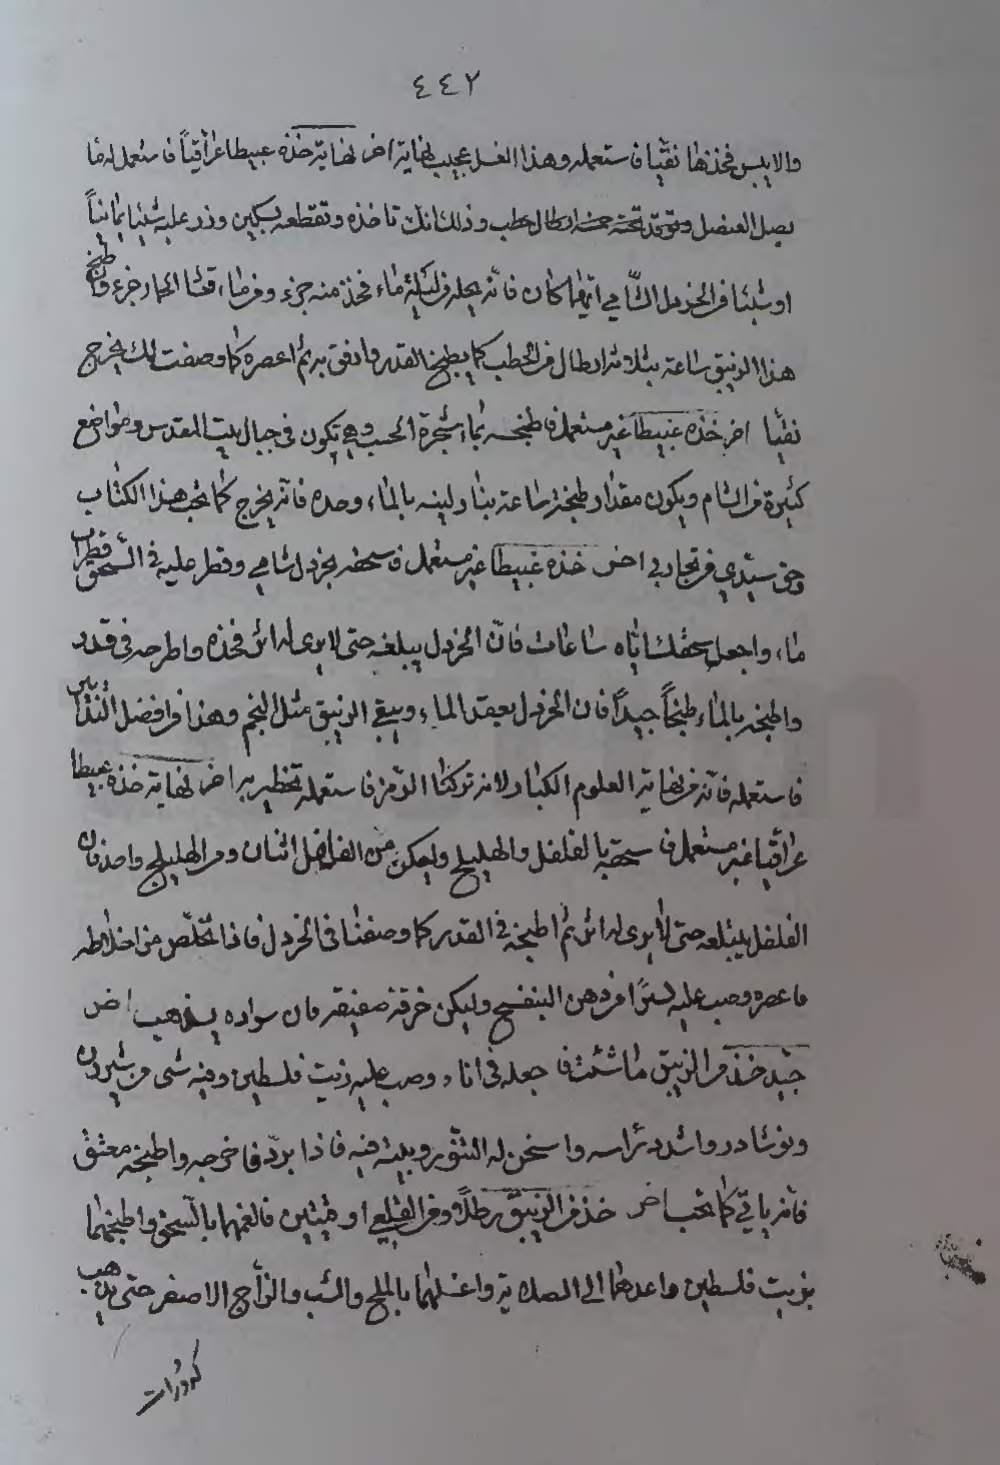 ٤٤٢
والا يبس فخذها نقيا فاستعمله وهذا الغسل عجيب نهاية اخر نهاية خذه عبيطا عراقياً فاستعمل له ما
بصل العنصل وتوقد تحته خمسة ارطال حطب وذلك انك تاخذه وتقطعه بسكين وذر عليه شيئا يمانياً
او شيئا من الخردل الشامي ايهما كان فانه يحله من ليلة ماء فخذ منه جزء ومن ماء قثا الحمار جزء وان طبخ
هذا الزيبق ساعة بثلاثة ارطال من الحطب كما يطبخ القدر وارفق به ثم اعصره كما وصفت لك يخرج
نقيا اخر خذه عبيطا غير مستعمل فاطبخه بماء شجرة الحب وهي تكون في جبال بيت المقدس ومواضع
كثيرة من الشام ويكون مقدار طبخه ساعة بنار لينه بالماء وحده فانه يخرج كما تحب هذا الكتاب
وحق سيدي من تجاربي اخر خذه عبيطا غير مستعمل فاسحقه بخردل شامي وقطر عليه في السحق قطرات
ماء واجعل سحقك اياه ساعات فان الخردل يبلغه حتى لا يرى له اثر فخذه واطرحه في قدر
واطبخه بالماء طبخاً جيداً فان الخردل يعقد الماء ويبقى الزيبق مثل النجم وهذا من افضل التدابير
فاستعمله فانه من نهاية العلوم الكبار لانه تركنا الرمز فاستعمله تظفر به اخر نهاية خذه عبيطا
عراقيا غير مستعمل فاسحقه بالفلفل والهليلج وليكن من الفلفل اثنان ومن الهليلج واحد فان
الفلفل يبتلعه حتى لا يرى له اثر ثم اطبخه في القدر كما وصفنا في الخردل فاذا تخلص من اخلاطه
فاعصره وصب عليه شيئا من دهن البنفسج وليكن خرقة صفيقه فان سواده يذهب اخر
جيد خذ من الزيبق ما شئت فاجعله في اناء وصب عليه زيت فلسطين وفيه شى من
ونوشادر واشدد راسه واسخن له التنور وبيته فيه فاذا برد فاخرجه واطبخه
فانه ياتي كما تحب اخر خذ من الزيبق رطلا ومن القلعي اوقيتين فالغمهما بالسحق واطبخهما
بزيت فلسطين واعدهما الى الصلاية واغسلهما بالملح والشب والزاج الاصفر حتى يذهب